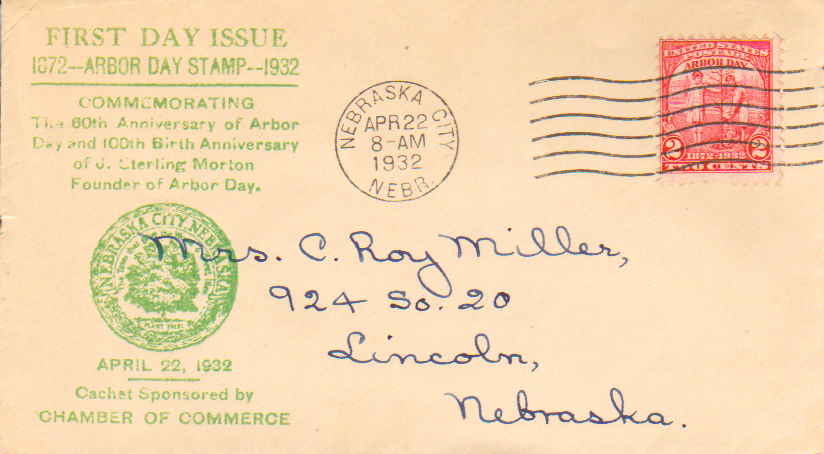 FIRST DAY ISSUE
1872--ARBOR DAY STAMP--1932
COMMEMORATING
The 60th Anniversary of Arbor
Day and 100th Birth Anniversary
of J. Sterling Morton
Founder of Arbor Day.
NEBRASKA CITY, NEBRASKA
PLANT TREES
APRIL 22, 1932
Cachet Sponsored by
CHAMBER OF COMMERCE
NEBRASKA CITY
APR 22
8-AM
1932
NEBR.
UNITED STATES
POSTAGE
ARBOR DAY
2 1872-1932 2
TWO CENTS
Mrs. C. Roy Miller,
924 So. 20
Lincoln,
Nebraska.